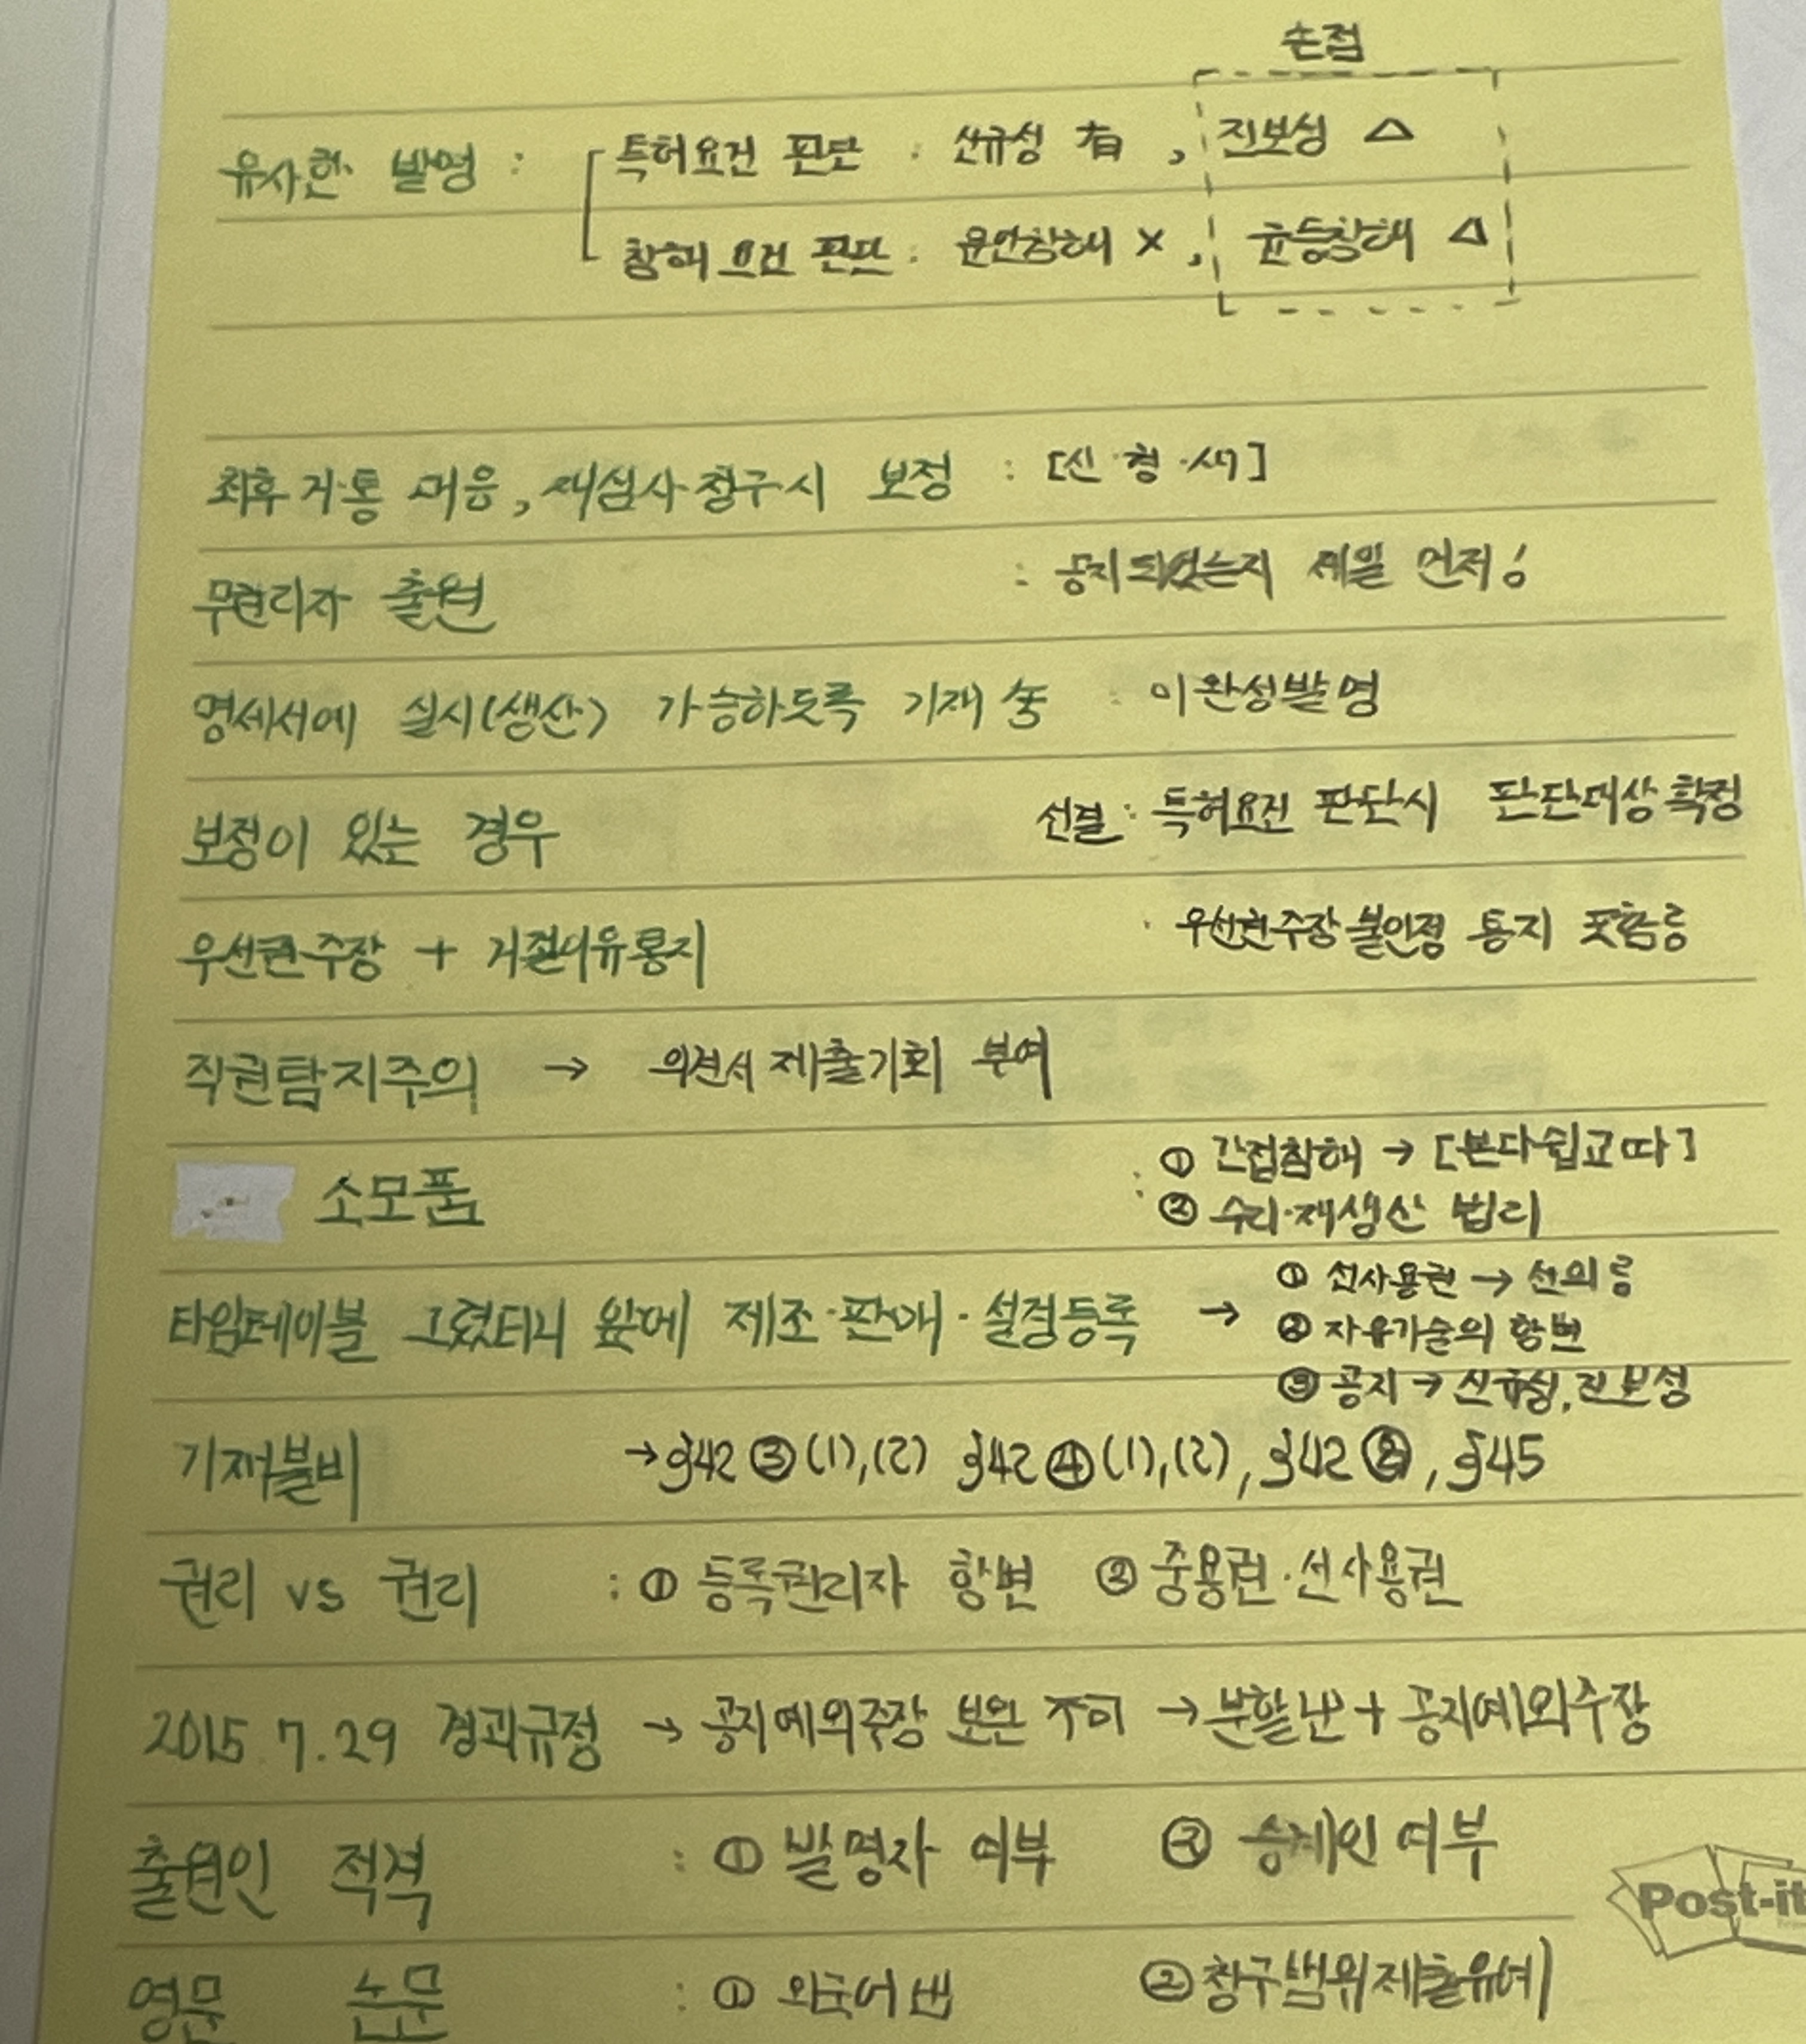 손접
유사한 발명 : 특허요건 판단 : 신규성 有, 진보성 △
침해 요건 판단 : 문언침해 X, 균등침해 △
최후거통 대응, 재심사청구시 보정 : [신·형·새]
무권리자 출원 : 공지되었는지 제일 먼저!
명세서에 실시(생산) 가능하도록 기재 : 미완성발명
보정이 있는 경우 선결 : 특허요건 판단시 판단대상 확정
우선권주장 + 거절이유통지 : 우선권주장 불인정 통지 포함
직권탐지주의 → 의견서 제출기회 부여
소모품 : ① 간접침해 → [본다쉽교따]
② 수리·재생산 법리
타임테이블 그렸더니 앞에 제조·판매·설정등록 → ① 선사용권 → 선의
② 자유기술의 항변
③ 공지 → 신규성, 진보성
기재불비 → §42 ③ (1), (2) §42 ④ (1), (2), §42 ⑧, §45
권리 vs 권리 : ① 등록권리자 항변 ② 중용권·선사용권
2015. 7. 29 경과규정 → 공지예외주장 보완 不可 → 분할 + 공지예외주장
출원인 적격 : ① 발명자 여부 ② 승계인 여부
영문 논문 : ① 외국어 ② 청구범위제출유예
Post-it